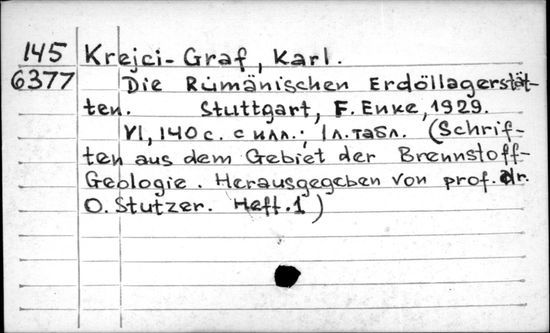 145 Krejci-Graf, Karl.
6377 Die Rumänischen Erdöllagerstät-
ten. Stuttgart, F. Enke, 1929.
VI, 140 с. с илл.; 1 л. табл. (Schrif-
ten aus dem Gebiet der Brennstoff-
Geologie. Herausgegeben von prof. dr.
O. Stutzer. Heft. 1)